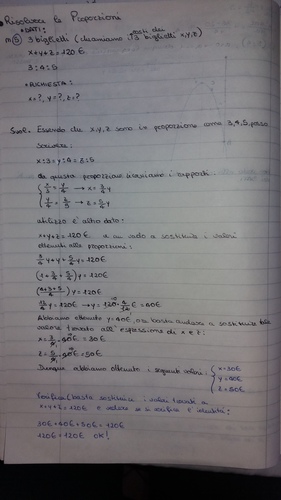 • Risolvere le Proporzioni
• DATI:
n(5) 3 biglietti (chiamiamo i costi dei 3 biglietti x,y,z)
x+y+z = 120€
3:4:5
• RICHIESTA:
x=?, y=?, z=?
Svol. Essendo che x,y,z sono in proporzione come 3,4,5, posso
scrivere:
x:3 = y:4 = z:5
da questa proporzione ricaviamo i rapporti.
x/3 = y/4 → x = 3/4 y
y/4 = z/5 → z = 5/4 y
utilizzo l'altro dato:
x+y+z = 120€ e vado a sostituire i valori
ottenuti alle proporzioni:
3/4 y + y + 5/4 y = 120€
(1 + 3/4 + 5/4) y = 120€
(4+3+5/4) y = 120€
12/4 y = 120€ → y = 120 · 4/12 € = 40€
Abbiamo ottenuto y=40€, ora basta andare a sostituire tale
valore trovato all'espressione di x e z:
x = 3/4 · 40€ = 30€
z = 5/4 · 40€ = 50€
Dunque abbiamo ottenuto i seguenti valori:
x=30€
y=40€
z=50€
Verifica (basta sostituire i valori trovati a
x+y+z=120€ e vedere se si verifica l'identità):
30€+40€+50€ = 120€
120€ = 120€ OK!